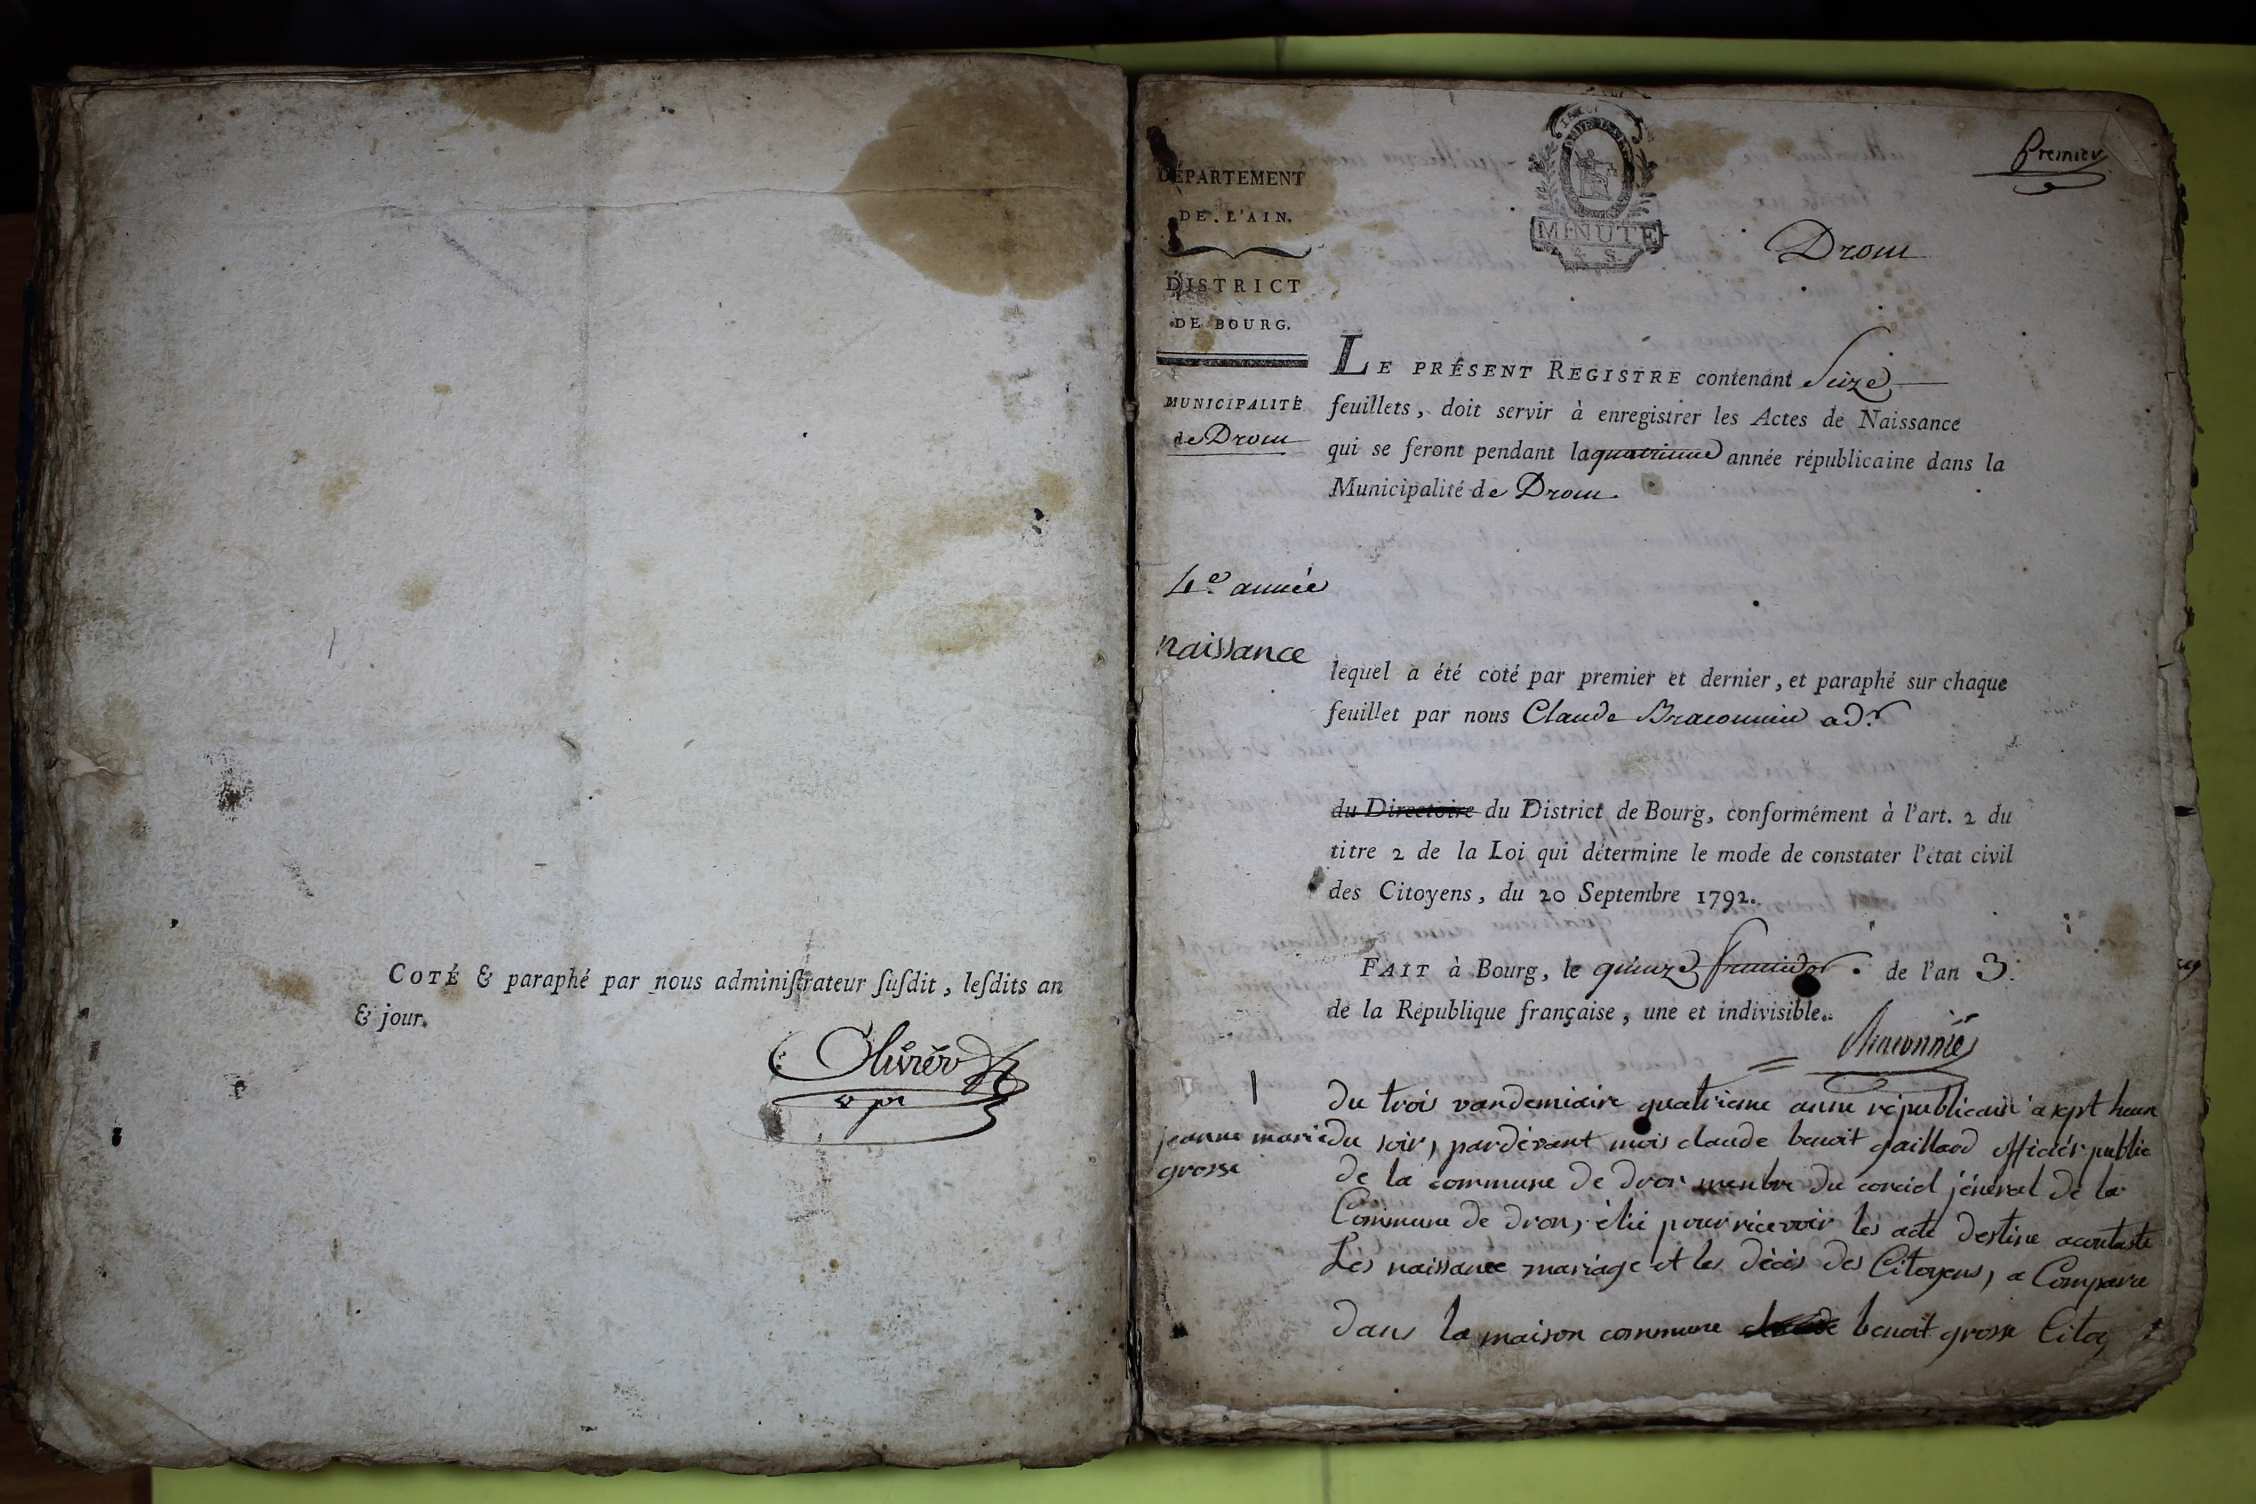 COTÉ & paraphé par nous adminiſtrateur ſuſdit, leſdits an
& jour.
Olivier
DÉPARTEMENT
DE L'AIN.
DISTRICT
DE BOURG.
MUNICIPALITÉ
de Drom
4e. année
naissance
MINUTE
4 S
premier
Drom
LE PRÉSENT REGISTRE contenant Seize
feuillets, doit servir à enregistrer les Actes de Naissance
qui se feront pendant la quatrieme année républicaine dans la
Municipalité de Drom.
lequel a été coté par premier et dernier, et paraphé sur chaque
feuillet par nous Claude Braconnier adr
du Directoire du District de Bourg, conformément à l'art. 2 du
titre 2 de la Loi qui détermine le mode de constater l'état civil
des Citoyens, du 20 Septembre 1792.
FAIT à Bourg, le quinze fructidor de l'an 3.
de la République française, une et indivisible.
Braconnier
1
jeanne marie
grosse
du trois vandemiaire quatrieme anne republicain a sept heure
du soir, pardevant mois claude benoit gaillard officiér public
de la commune de dron menbre du conciel jéneral de la
Commune de dron, élie pour ricevoir les acte destine acontaste
Lés naissance mariage et les décés des Citoyens, a Compara
dans la maison commune claude benoit grosse Citoy